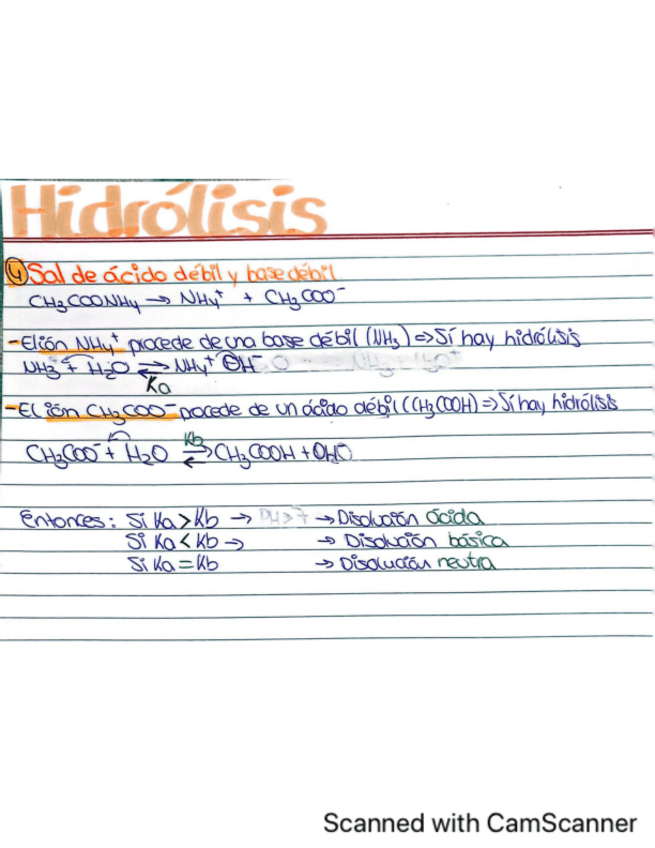 Hidrólisis
④ Sal de ácido débil y base débil
CH₃COONH₄ → NH₄⁺ + CH₃COO⁻
- El ión NH₄⁺ procede de una base débil (NH₃) ⇒ Sí hay hidrólisis
NH₃ + H₂O ⇄ NH₄⁺ OH⁻
Ka
- El ión CH₃COO⁻ procede de un ácido débil (CH₃COOH) ⇒ Sí hay hidrólisis
Kb
CH₃COO⁻ + H₂O ⇄ CH₃COOH + OH⊖
Entonces: Si Ka > Kb → → Disolución ácida
Si Ka < Kb → → Disolución básica
Si Ka = Kb → Disolución neutra
Scanned with CamScanner